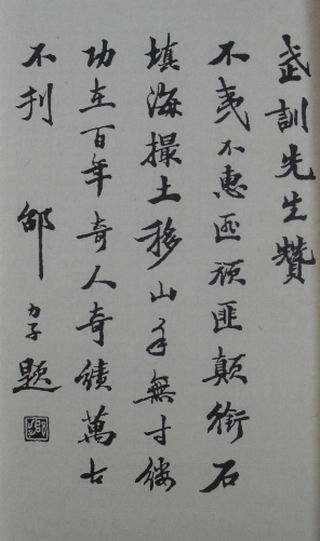 武訓先生贊
不夷不惠匪頑匪顛銜石
填海撮土移山手無寸縷
功在百年奇人奇績萬古
不刊 邵力子題